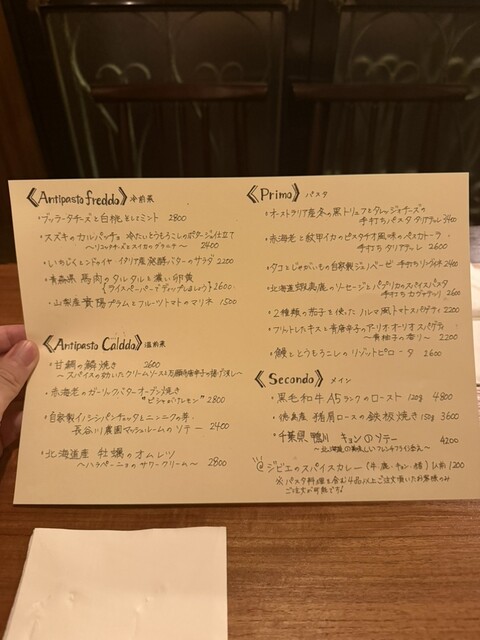 《Antipasto freddo》冷前菜
・ブッラータチーズと白桃とミント 2800
・スズキのカルパッチョ 冷たいとうもろこしのポタージュ仕立て
2400
・いちじくとンドゥイヤ イタリア産発酵バターのサラダ 2200
・青森県 馬肉のタルタルと濃い卵黄
2600
・山梨産 貴陽プラムとフルーツトマトのマリネ 1500
《Antipasto Caldo》温前菜
・甘鯛の鱗焼き 2600
・赤海老のガーリックバターオーブン焼き
2800
・自家製イノシシパンチェッタとニンニクの芽、
長谷川農園マッシュルームのソテー 2400
・北海道産 牡蠣のオムレツ
〜ハラペーニョのサワークリーム〜 2800
《Primo》パスタ
・オーストラリア産冬の黒トリュフとタレッジョチーズの
手打ちパスタ タリアテッレ
・赤海老と紋甲イカのピスタチオ風味のペスカトーラ
手打ち タリアテッレ 2600
・タコとじゃがいもの自家製ジェノベーゼ 手打ちリングイネ 2400
・北海道蝦夷鹿のソーセージとパプリカのスパイスパスタ
手打ち 2400
・2種類の茄子を使った パルマ風トマトスパゲティ 2200
・フリットしたキスと青唐辛子のアーリオオーリオスパゲティ
〜青柚子の香り〜 2200
・鰻ととうもろこしのリゾット 2600
《Secondo》メイン
・黒毛和牛 A5ランクのロースト 120g 4800
・徳島産 猪肩ロースの鉄板焼き 150g 3600
・千葉県 鴨川 キョンのソテー
4200
ジビエのスパイスカレー (牛・鹿・キョン・猪) 1200
※パスタ料理を含む4品以上ご注文頂いたお客様のみ
ご注文が可能です!